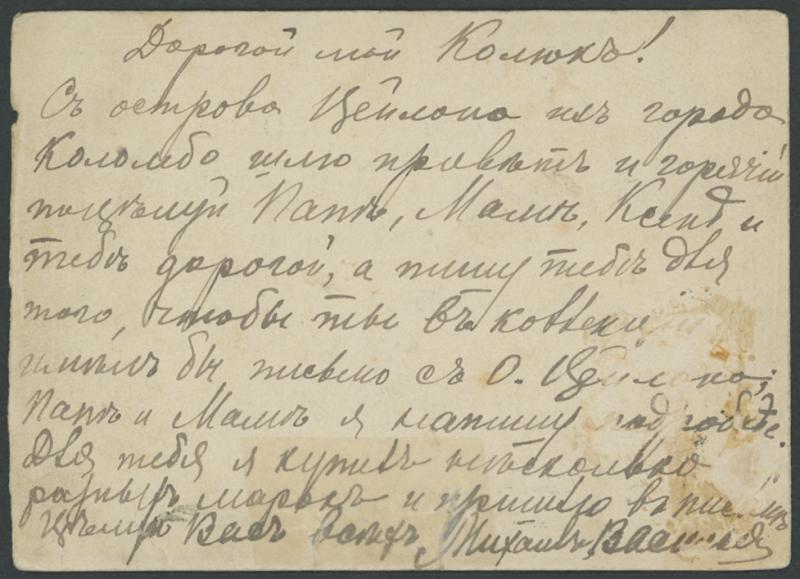 Дорогой мой Колюкъ!
Съ острова Цейлона изъ города
Коломбо шлю привѣтъ и горячій
поцѣлуй Папѣ, Мамѣ, Ксенѣ и
тебѣ дорогой, а пишу тебѣ для
того, чтобы ты въ коллекціи
имѣлъ бы письмо съ О. Цейлона;
Папѣ и Мамѣ я напишу подробнѣе.
Для тебя я купилъ нѣсколько
разныхъ марокъ и пришлю въ письмѣ
Цѣлую Васъ всѣхъ, Михаилъ